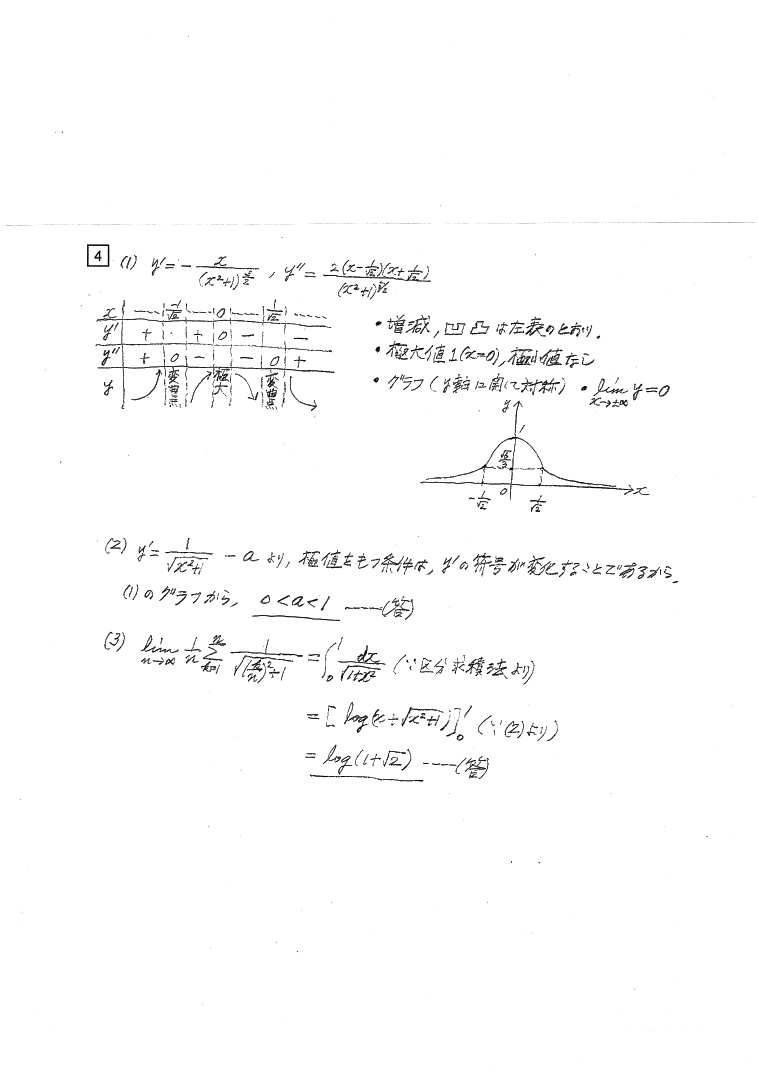 4 (1) y' = - x/(x²+1)^{3/2} , y'' = 2(x-1/√2)(x+1/√2)/(x²+1)^{5/2}
x ---- -1/√2 ---- 0 ---- 1/√2 ----
y' + · + 0 - -
y'' + 0 - - 0 +
y 変曲点 極大 変曲点
・増減, 凹凸は左表のとおり.
・極大値1(x=0), 極小値なし
・グラフ(y軸に関して対称) ・lim_{x→±∞} y=0
y
1
0
x
-1/√2
1/√2
(2) y' = 1/√(x²+1) - a より, 極値をもつ条件は, y'の符号が変化することであるから.
(1)のグラフから, 0<a<1 ----(答)
(3) lim_{n→∞} 1/n Σ_{k=1}^{n} 1/√((k/n)²+1) = ∫_0^1 dx/√(1+x²) (∵区分求積法より)
= [log(x+√(x²+1))]_0^1 (∵(2)より)
= log(1+√2) ----(答)